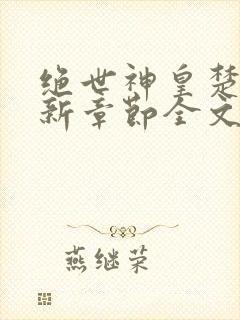 绝世神皇楚
新章节全文
燕继荣